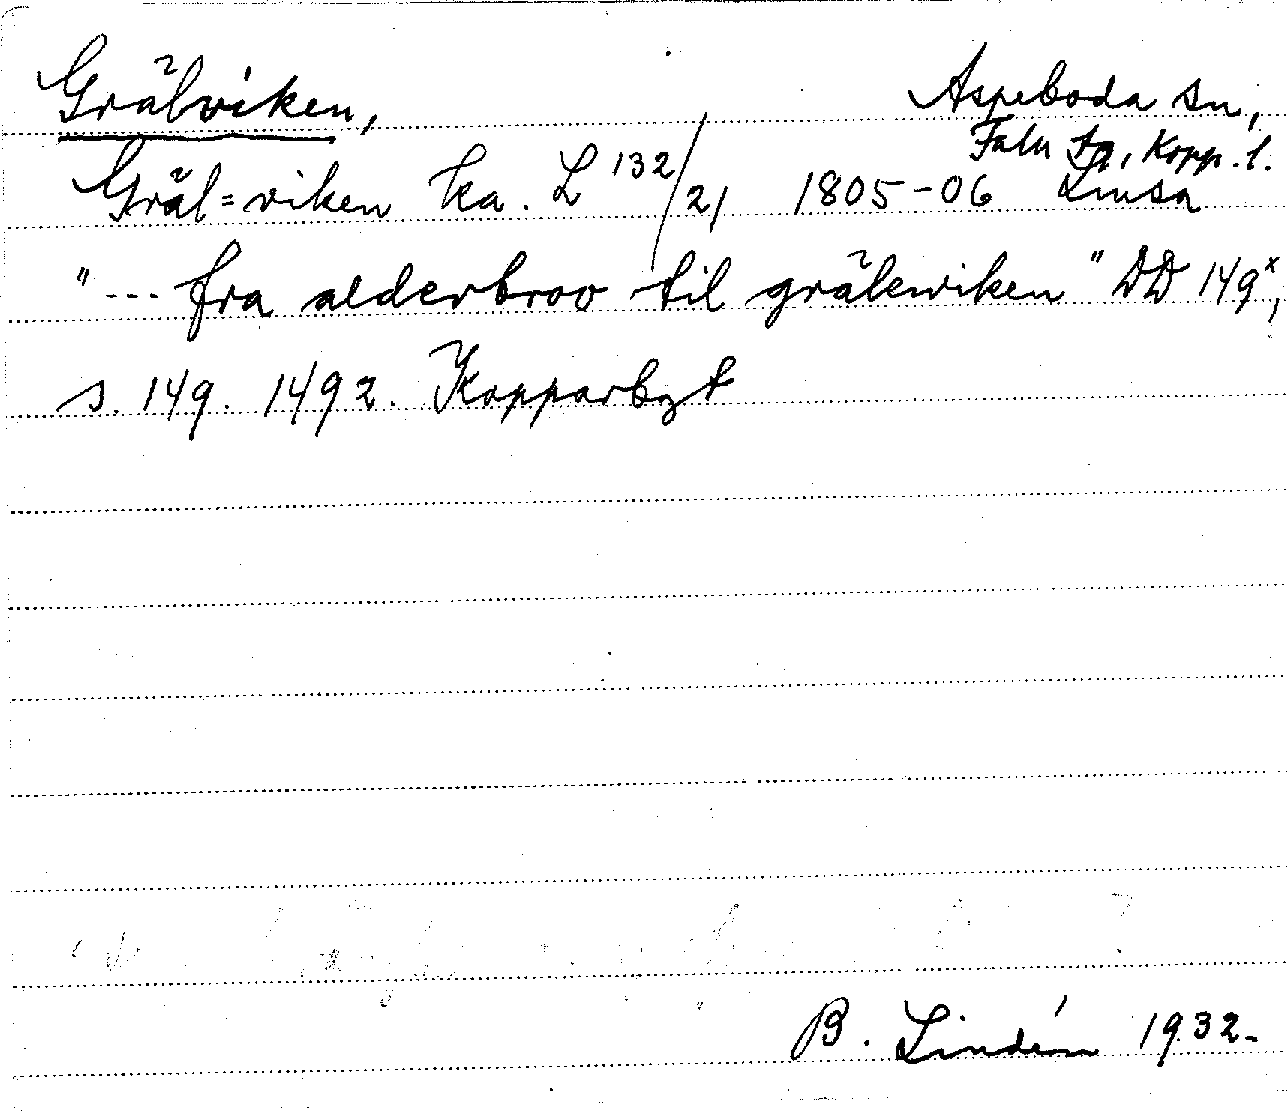 Grälviken,
Aspeboda sn,
Falu tg, Kopp. l.
Gräl=viken ka. L 132/21 1805-06 Linsa
"--- fra alderbroo til grälewiken" DD 149x,
s. 149. 1492. Kopparbgt
B. Lindén 1932.